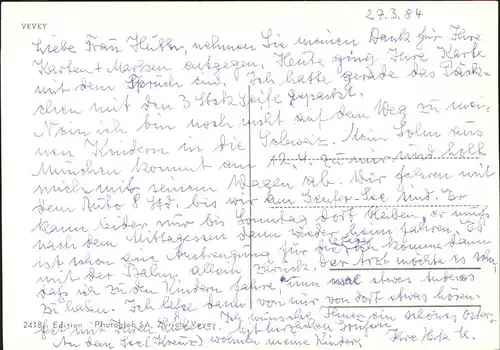 VEVEY
27.3.84
Liebe Frau Hütter, nehmen Sie meinen Dank für Ihre
Karten + Marken entgegen. Heute ging Ihre Karte
mit dem Spruch ein. Ich hatte gerade das Päck-
chen mit den 3 Stck Seife gepackt.
Nein ich bin noch nicht auf dem Weg zu mei-
nen Kindern in die Schweiz. Mein Sohn aus
München kommt am 12.4. zu mir und holt
mich mit seinem Wagen ab. Wir fahren mit
dem Auto 8 Std. bis wir am Genfer-See sind. Er
kann leider nur bis Sonntag dort bleiben, er muß
nach dem Mittagessen dann wieder heim fahren. Es
ist schon eine Anstrengung für die Tage komme dann
mit der Bahn allein zurück. Der Arzt möchte es
daß ich zu den Kindern fahre, um mal etwas Anderes
zu haben. Ich lasse dann von mir von dort etwas hören.
2418 Edition Photoglob SA, Zürich/Vevey
Ich wünsche Ihnen ein schönes Oster-
fest mit herzlichen Grüßen
An dem See (Kreuz) wohnen meine Kinder, Ihre